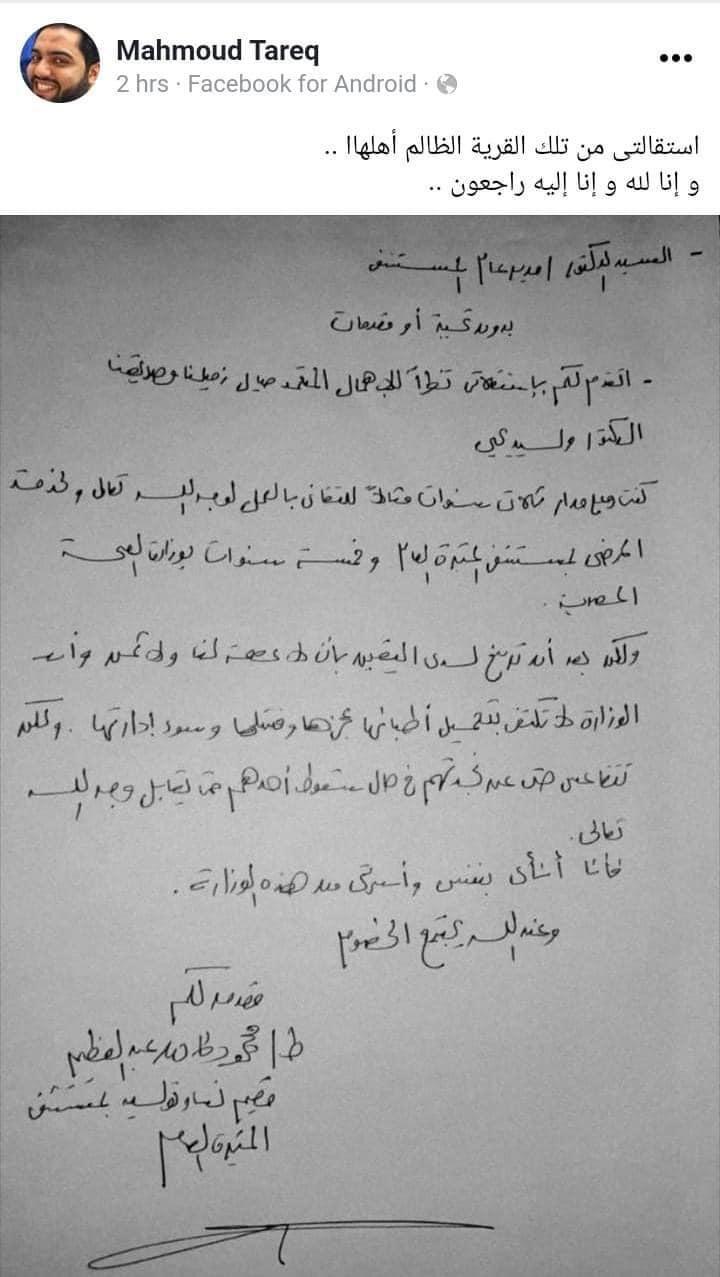 Mahmoud Tareq
2 hrs · Facebook for Android ·
استقالتى من تلك القرية الظالم أهلهاا ..
و إنا لله و إنا إليه راجعون ..
- السيد الدكتور / مدير عام المستشفى
بدون تحية أو مقدمات
- أتقدم لكم بإستقالتى نظراً للإهمال المتعمد حيال زميلنا وصديقنا
الدكتور / وليد يحيي
كنت وعلى مدار ثلاث سنوات مثالاً للتفانى بالعمل لوجه الله تعالى ولخدمة
المرضى بمستشفى المنيرة العام وخمسة سنوات بوزارة الصحة
المصرية .
ولكن بعد أن ترسخ لدى اليقين بأن لا لنا ولا ثمن وأن
الوزارة لا تكتفى بتحميل أطبائها عجزها وفشلها وسوء إدارتها . ولكن
تتقاعس حتى عن نجدتهم فى حال سقوط أحدهم حتى يقابل وجه الله
تعالى .
فأنا أنأى بنفسى وأستبرئ من هذه الوزارة .
وعند الله تجتمع الخصوم
مقدمه لكم
ط / محمود طارق عبد العظيم
مقيم نساء وتوليد بمستشفى
المنيرة العام